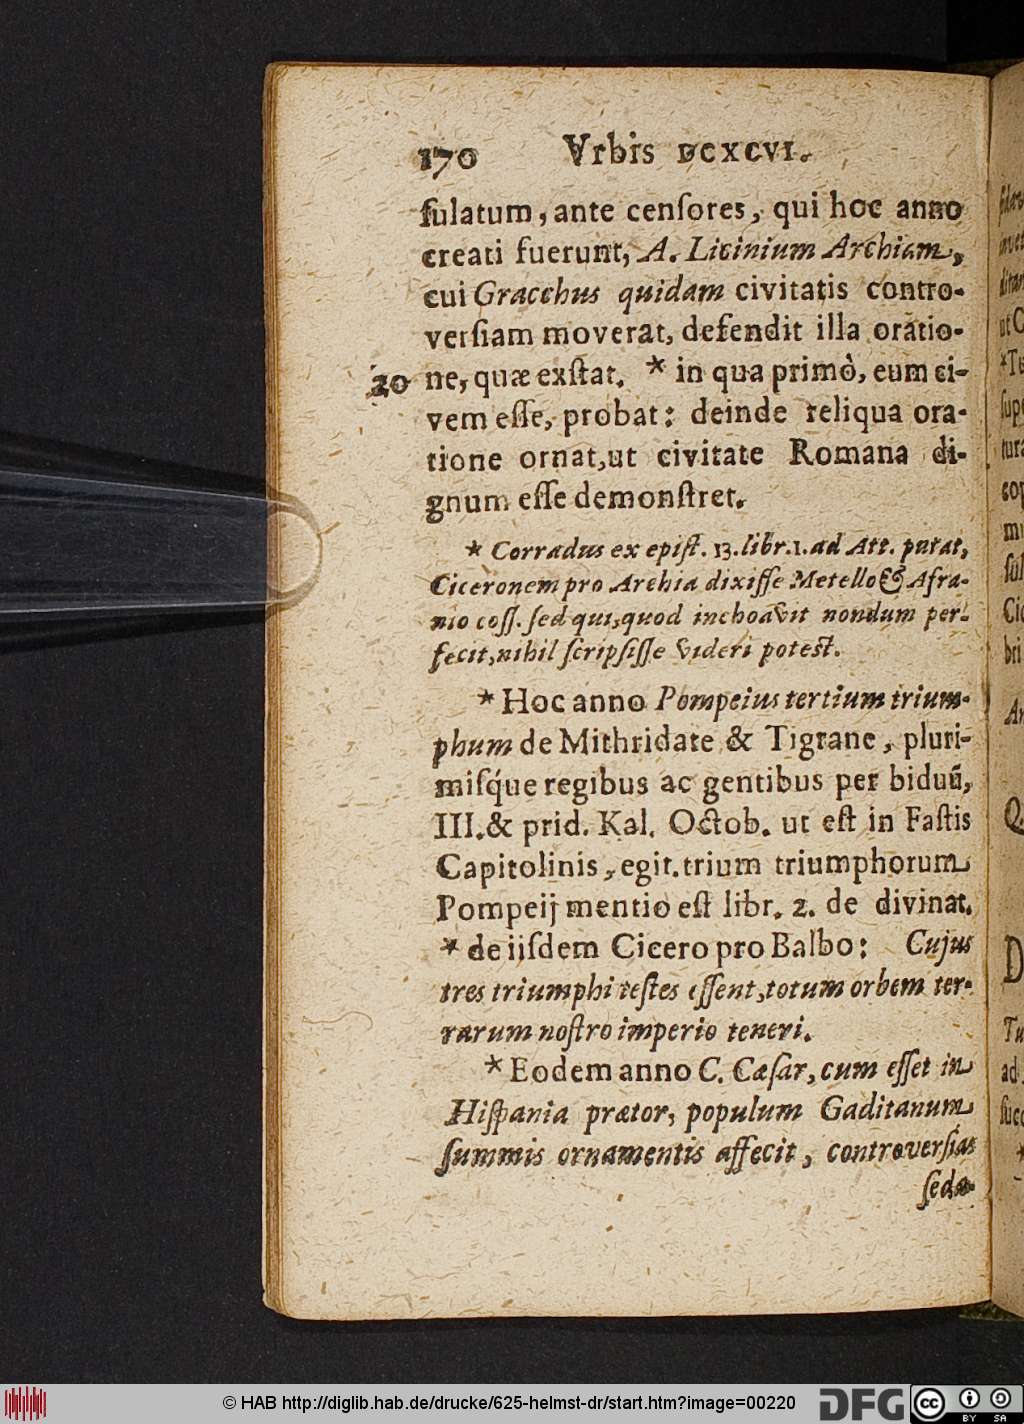 170 Vrbis DCXCVI.
ſulatum, ante cenſores, qui hoc anno
creati fuerunt, A. Licinium Archiam,
cui Gracchus quidam civitatis contro-
verſiam moverat, defendit illa oratio-
20 ne, quæ exſtat. * in qua primò, eum ci-
vem eſſe, probat: deinde reliqua ora-
tione ornat, ut civitate Romana di-
gnum eſſe demonſtret.
* Corradus ex epiſt. 13. libr. 1. ad Att. putat,
Ciceronem pro Archia dixiſſe Metello & Afra-
nio coſſ. ſed qui, quod inchoavit nondum per-
fecit, nihil ſcripſiſſe videri potest.
* Hoc anno Pompeius tertium trium-
phum de Mithridate & Tigrane, pluri-
miſq́ue regibus ac gentibus per biduũ,
III. & prid. Kal. Octob. ut eſt in Faſtis
Capitolinis, egit. trium triumphorum
Pompeij mentio eſt libr. 2. de divinat.
* de iiſdem Cicero pro Balbo: Cujus
tres triumphi teſtes eſſent, totum orbem ter-
rarum noſtro imperio teneri.
* Eodem anno C. Cæſar, cum eſſet in
Hiſpania prætor, populum Gaditanum
ſummis ornamentis affecit, controverſias
ſeda-
© HAB http://diglib.hab.de/drucke/625-helmst-dr/start.htm?image=00220 DFG cc BY SA